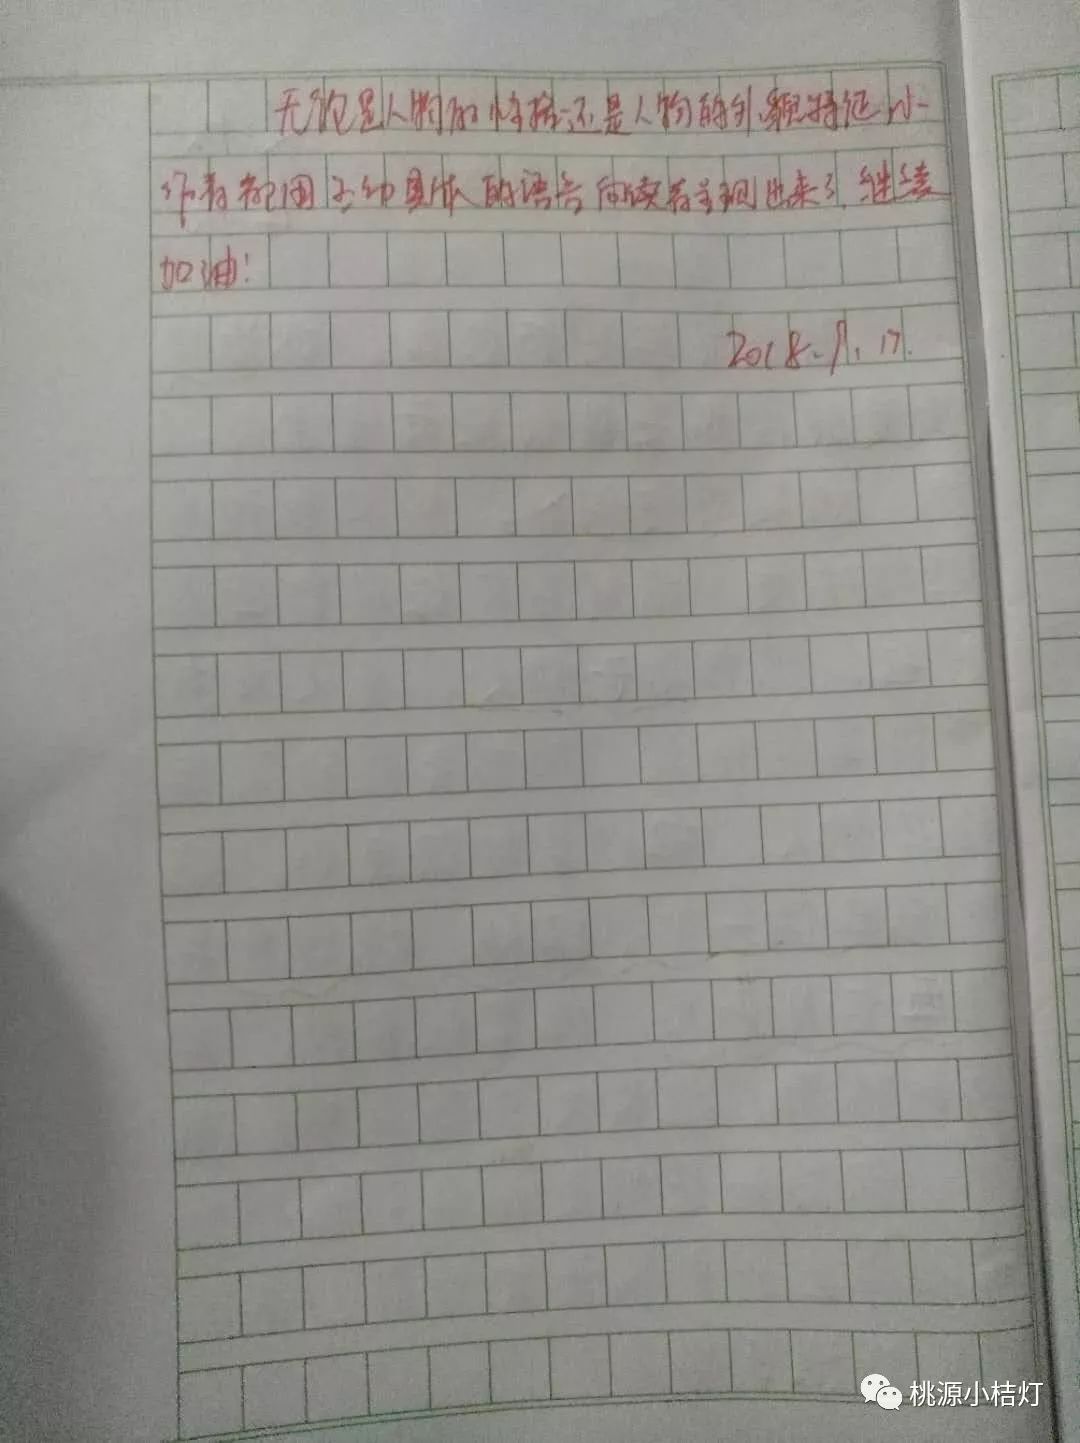 无论是人物的性格还是人物的外貌特征,小
作者都用了细具体的语言向读者呈现出来了,继续
加油!
2018.9.17.
桃源小桔灯